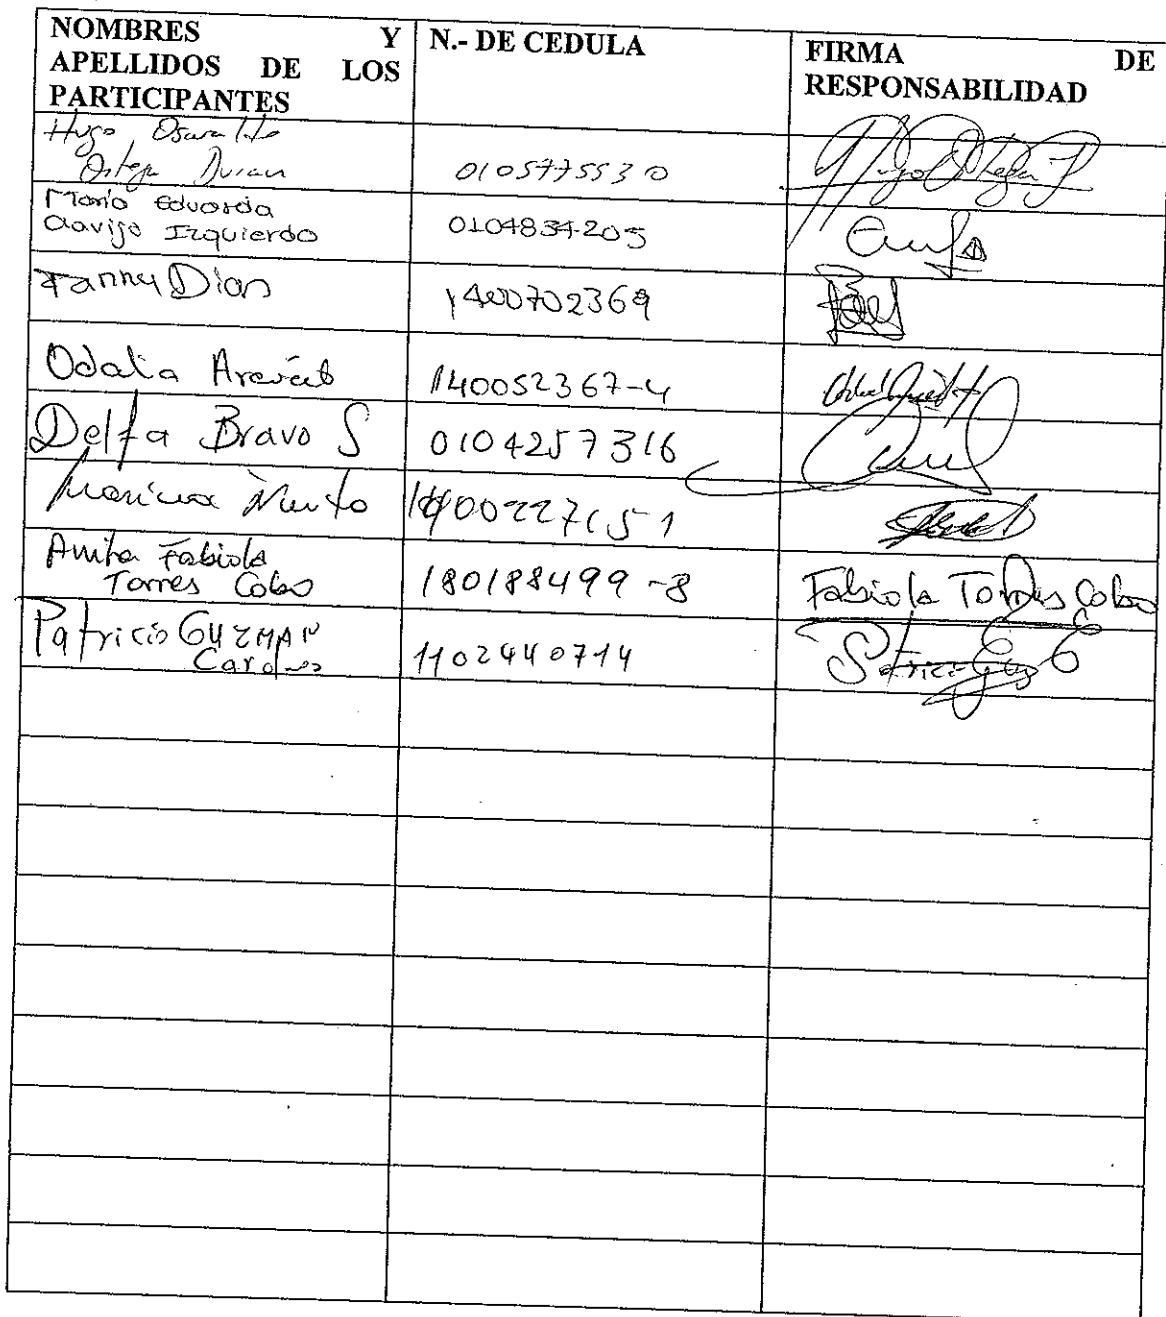 NOMBRES Y
APELLIDOS DE LOS
PARTICIPANTES
N.- DE CEDULA
FIRMA DE
RESPONSABILIDAD
Hugo Osvaldo
Ortega Duran
0105775530
Maria Eduarda
Clavijo Izquierdo
0104834205
Fanny Dian
1400702369
Odalia
140052367-4
Delfa Bravo S
0104257316
Anita Fabiola
Torres Cobo
180188499-8
Fabiola Torres Cobo
Patricio GUZMAN
1102440714